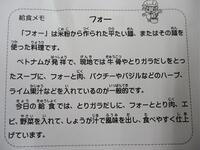 給食メモ　フォー
「フォー」は米粉から作られた平たい麺、またはその麺を
使った料理です。
ベトナムが発祥で、現地では牛骨やとりガラでだしをとっ
たスープに、フォーと肉、パクチーやバジルなどのハーブ、
ライム果汁などを入れているのが一般的です。
今日の給食では、とりガラだしに、フォーととり肉、エ
ビ、野菜を入れて、しょうが汁で風味を出し、食べやすく仕上
げています。